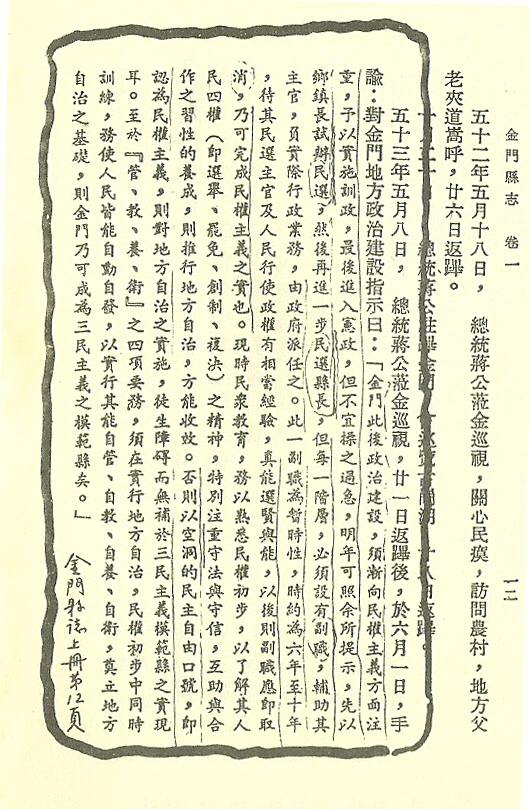 金門縣志 卷一
一二
五十二年五月十八日, 總統蔣公蒞金巡視,關心民瘼,訪問農村,地方父
老夾道嵩呼,廿六日返蹕。
總統蔣公駐蹕金門
五十三年五月八日, 總統蔣公蒞金巡視,廿一日返蹕後,於六月一日,手
諭:對金門地方政治建設指示曰:「金門此後政治建設,須漸向民權主義方面注
重,予以實施訓政,最後進入憲政,但不宜操之過急,明年可照余所提示,先以
鄉鎮長試辦民選,然後再進一步民選縣長,但每一階層,必須設有副職,輔助其
主官,負實際行政業務,由政府派任之。此一副職為暫時性,時約為六年至十年
,待其民選主官及人民行使政權有相當經驗,真能選賢與能,以後則副職應即取
消,乃可完成民權主義之實也。現時民衆教育,務以熟悉民權初步,以了解其人
民四權(即選舉、罷免、創制、複決)之精神,特別注重守法與守信,互助與合
作之習性的養成,則推行地方自治,方能收效。否則以空洞的民主自由口號,即
認為民權主義,則對地方自治之實施,徒生障碍而無補於三民主義模範縣之實現
耳。至於『管、教、養、衛』之四項要務,須在實行地方自治,民權初步中同時
訓練,務使人民皆能自動自發,以實行其能自管、自教、自養、自衛,奠立地方
自治之基礎,則金門乃可成為三民主義之模範縣矣。」
金門縣誌上冊第12頁